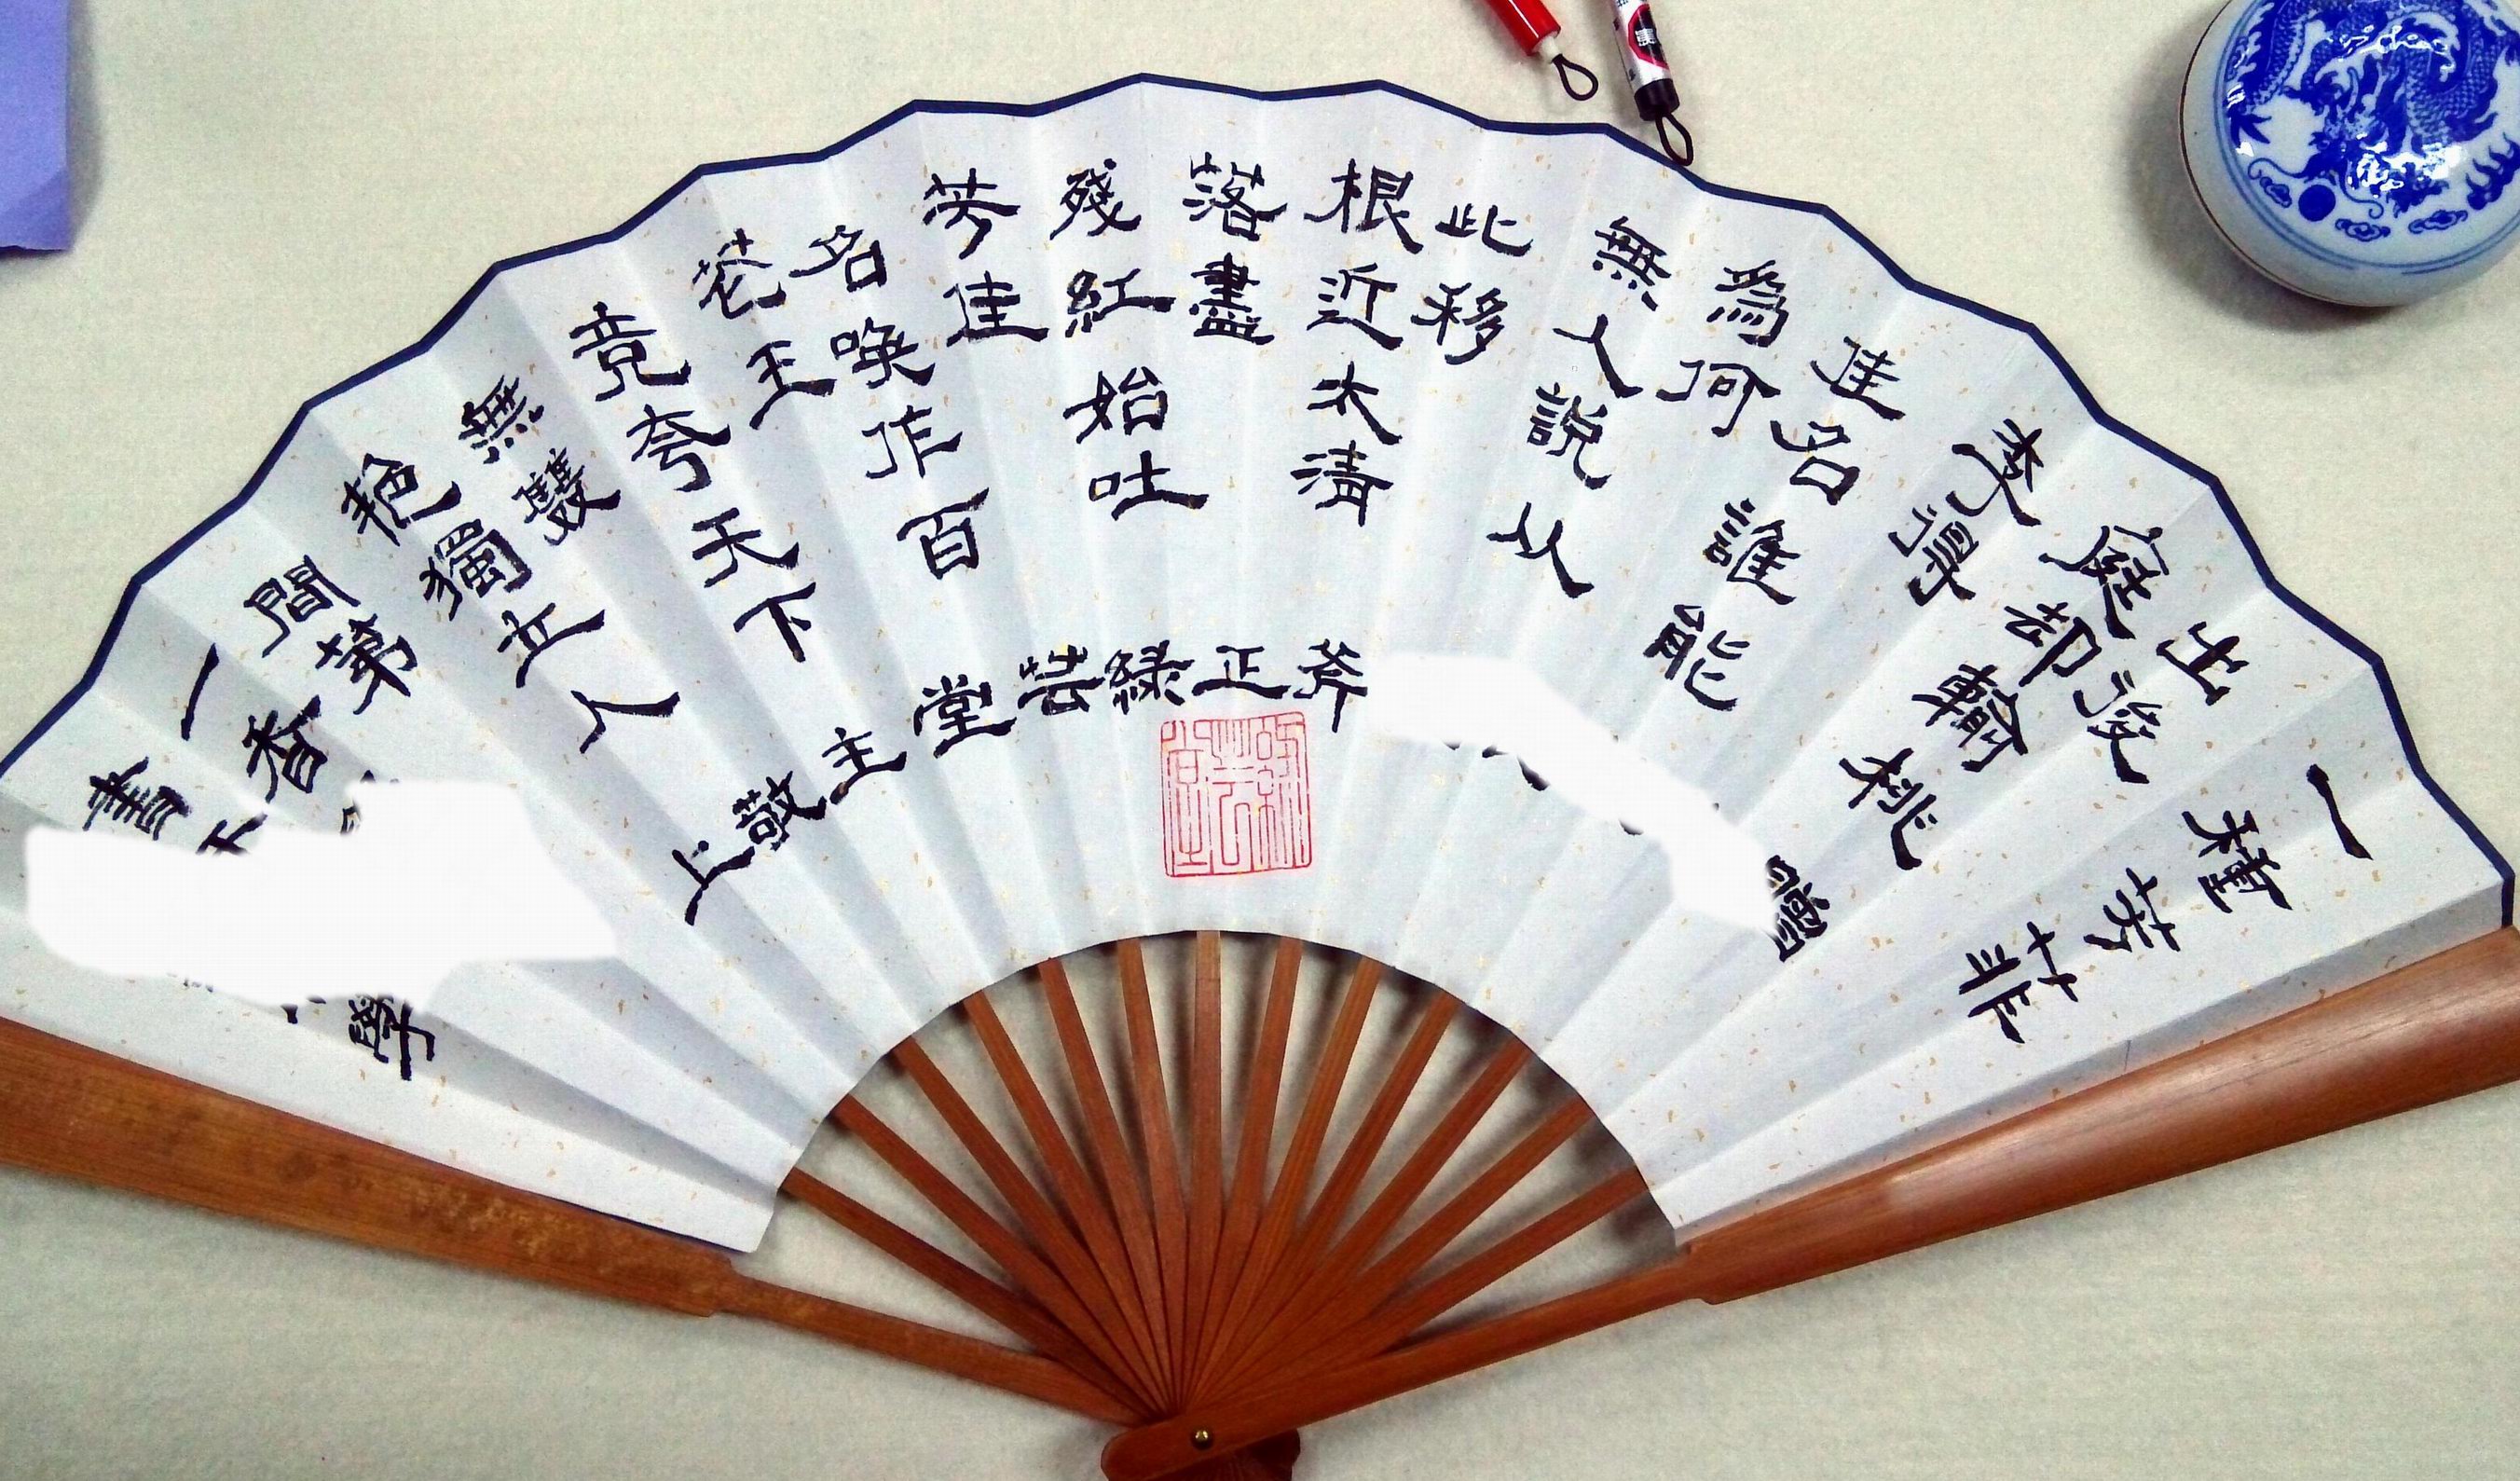 一種芳菲
出後
庭却輸桃
李得
佳名誰能
為何
無人說从
此移
根近太清
落盡
殘紅始吐
芳佳
名喚作百
花王
竞夸天下
無雙
艳獨立人
間第
一香
書
學
斧正綠芸堂主敬上